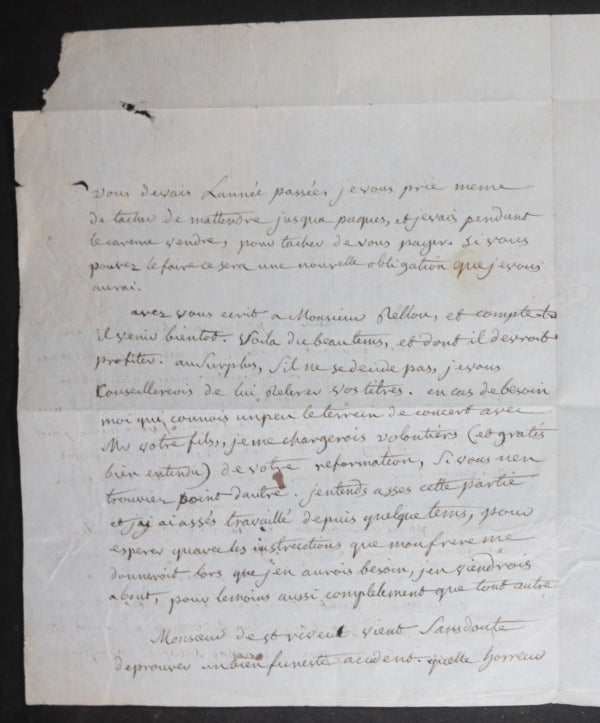 vous devais Lannée passée, je vous prie meme
de tacher de mattendre jusqua paques, et jevais pendant
le careme vendre, pour tacher de vous payer. Si vous
pouvez le faire ce sera une nouvelle obligation que je vous
aurai.
avez vous ecrit a Monsieur Rellon, et compte t
il venir bientot. Voila du beau tems, et dont il devroit
profiter. au Surplus, Sil ne se decide pas, je vous
Conseillerois de lui Retirer vos titres. en cas de besoin
moi qui connois un peu le terrein de concert avec
Mr votre fils, je me chargerois volontiers (et gratis
bien entendu) de votre reformation, Si vous nen
trouviez point dautre. jentends asses cette partie
et jy ai assés travaillé depuis quelque tems, pour
esperer quavec les instructions que mon frere me
donneroit lors que j'en aurois besoin, jen viendrois
a bout, pour le moins aussi complettement que tout autre
Monsieur de st vient Sans doute
deprouver un bien funeste accident. quelle horreur